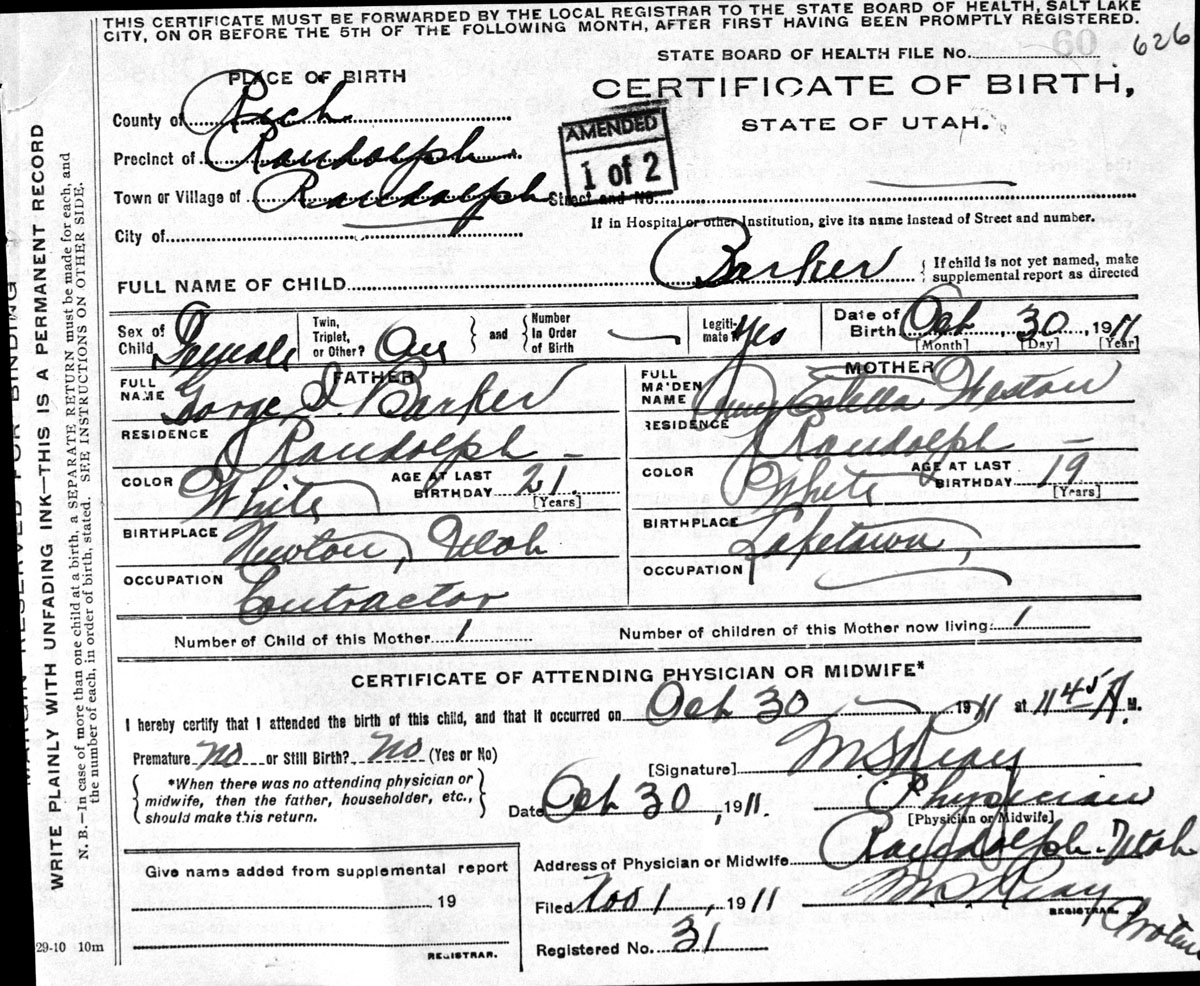 THIS CERTIFICATE MUST BE FORWARDED BY THE LOCAL REGISTRAR TO THE STATE BOARD OF HEALTH, SALT LAKE
CITY, ON OR BEFORE THE 5TH OF THE FOLLOWING MONTH, AFTER FIRST HAVING BEEN PROMPTLY REGISTERED.
60 626
STATE BOARD OF HEALTH FILE No.
PLACE OF BIRTH
CERTIFICATE OF BIRTH,
STATE OF UTAH.
County of Rich
AMENDED
1 of 2
Precinct of Randolph
Town or Village of Randolph Street and No.
If in Hospital or other Institution, give its name instead of Street and number.
City of
FULL NAME OF CHILD Barker { If child is not yet named, make supplemental report as directed
Sex of Child Female Twin, Triplet, or Other? One } and { Number In Order of Birth Legiti-mate? Yes Date of Birth Oct. 30, 1911
[Month] [Day] [Year]
FATHER MOTHER
FULL NAME George I. Barker FULL MAIDEN NAME Estella Weston
RESIDENCE Randolph RESIDENCE Randolph
COLOR White AGE AT LAST BIRTHDAY 21 [Years] COLOR White AGE AT LAST BIRTHDAY 19 [Years]
BIRTHPLACE Newton, Utah BIRTHPLACE Laketown,
OCCUPATION Contractor OCCUPATION
Number of Child of this Mother 1 Number of children of this Mother now living: 1
CERTIFICATE OF ATTENDING PHYSICIAN OR MIDWIFE*
I hereby certify that I attended the birth of this child, and that it occurred on Oct 30 1911 at 11 45 A. M.
Premature No or Still Birth? No (Yes or No)
[Signature]
{ *When there was no attending physician or midwife, then the father, householder, etc., should make this return. }
Date Oct 30, 1911. Physician
[Physician or Midwife]
Address of Physician or Midwife Randolph Utah
Give name added from supplemental report
19
Filed Nov 1, 1911
REGISTRAR.
Registered No. 31
REGISTRAR.
29-10 10m
MARGIN RESERVED FOR BINDING
WRITE PLAINLY WITH UNFADING INK—THIS IS A PERMANENT RECORD
N. B.—In case of more than one child at a birth, a SEPARATE RETURN must be made for each, and
the number of each, in order of birth, stated. SEE INSTRUCTIONS ON OTHER SIDE.